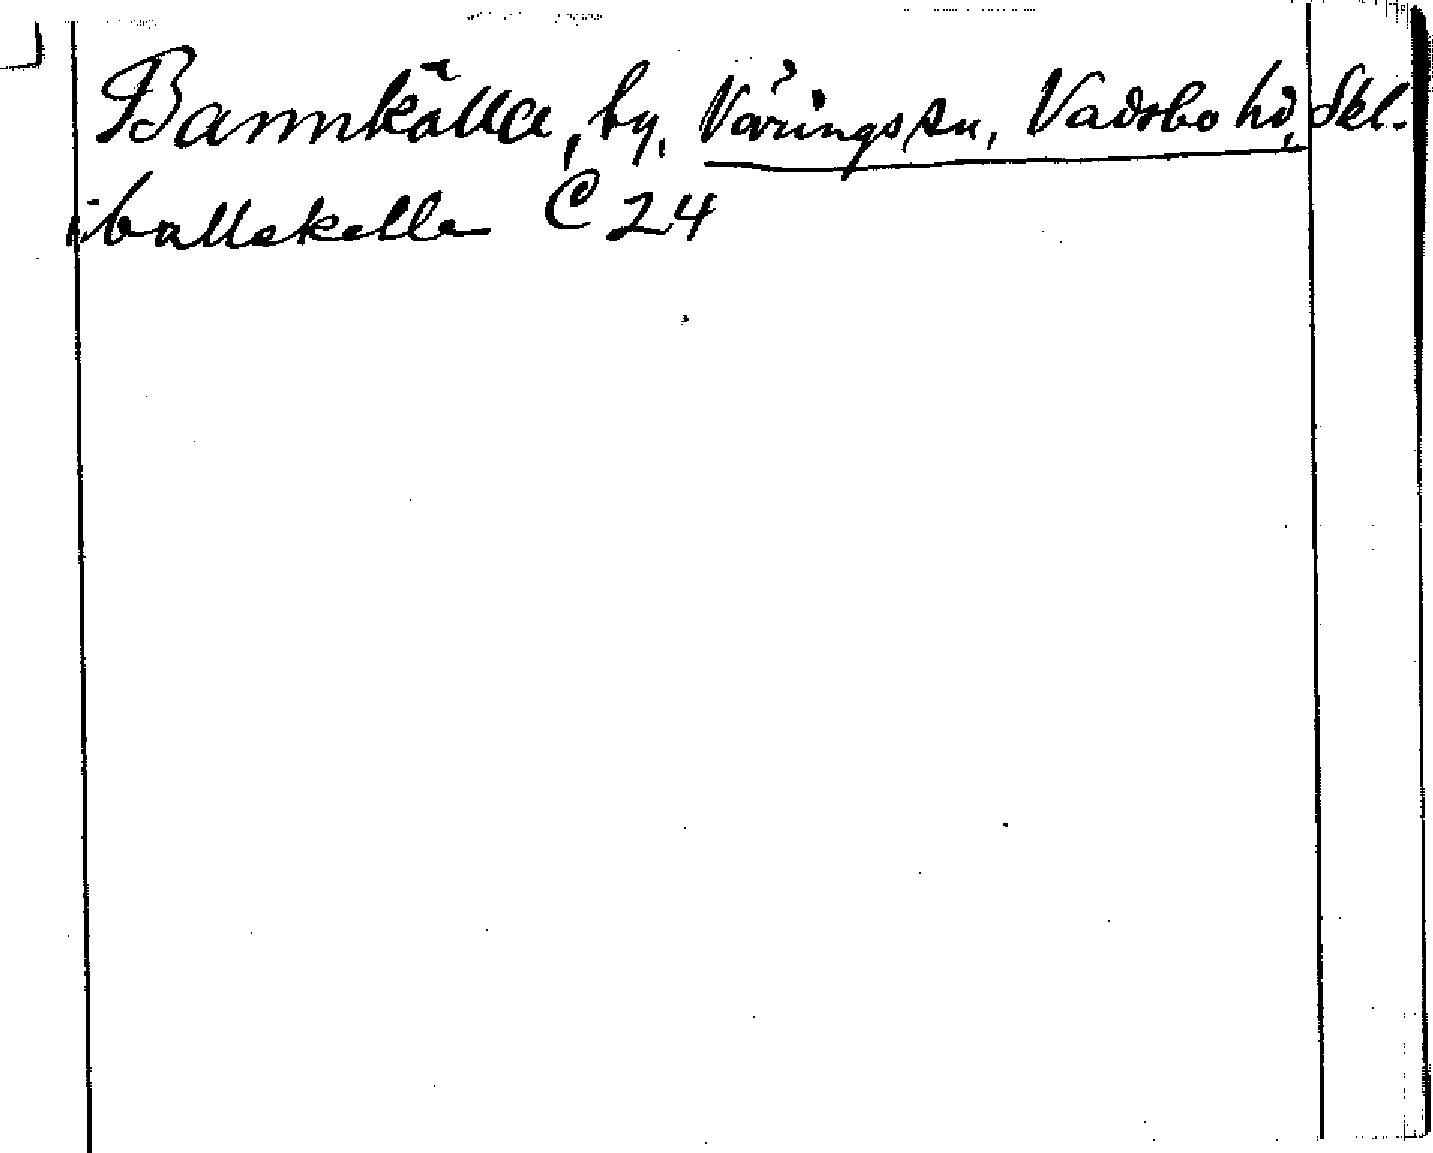 Bannkälla, by, Värings sn, Vadsbo hd, Skl.
i ballekelle C 24